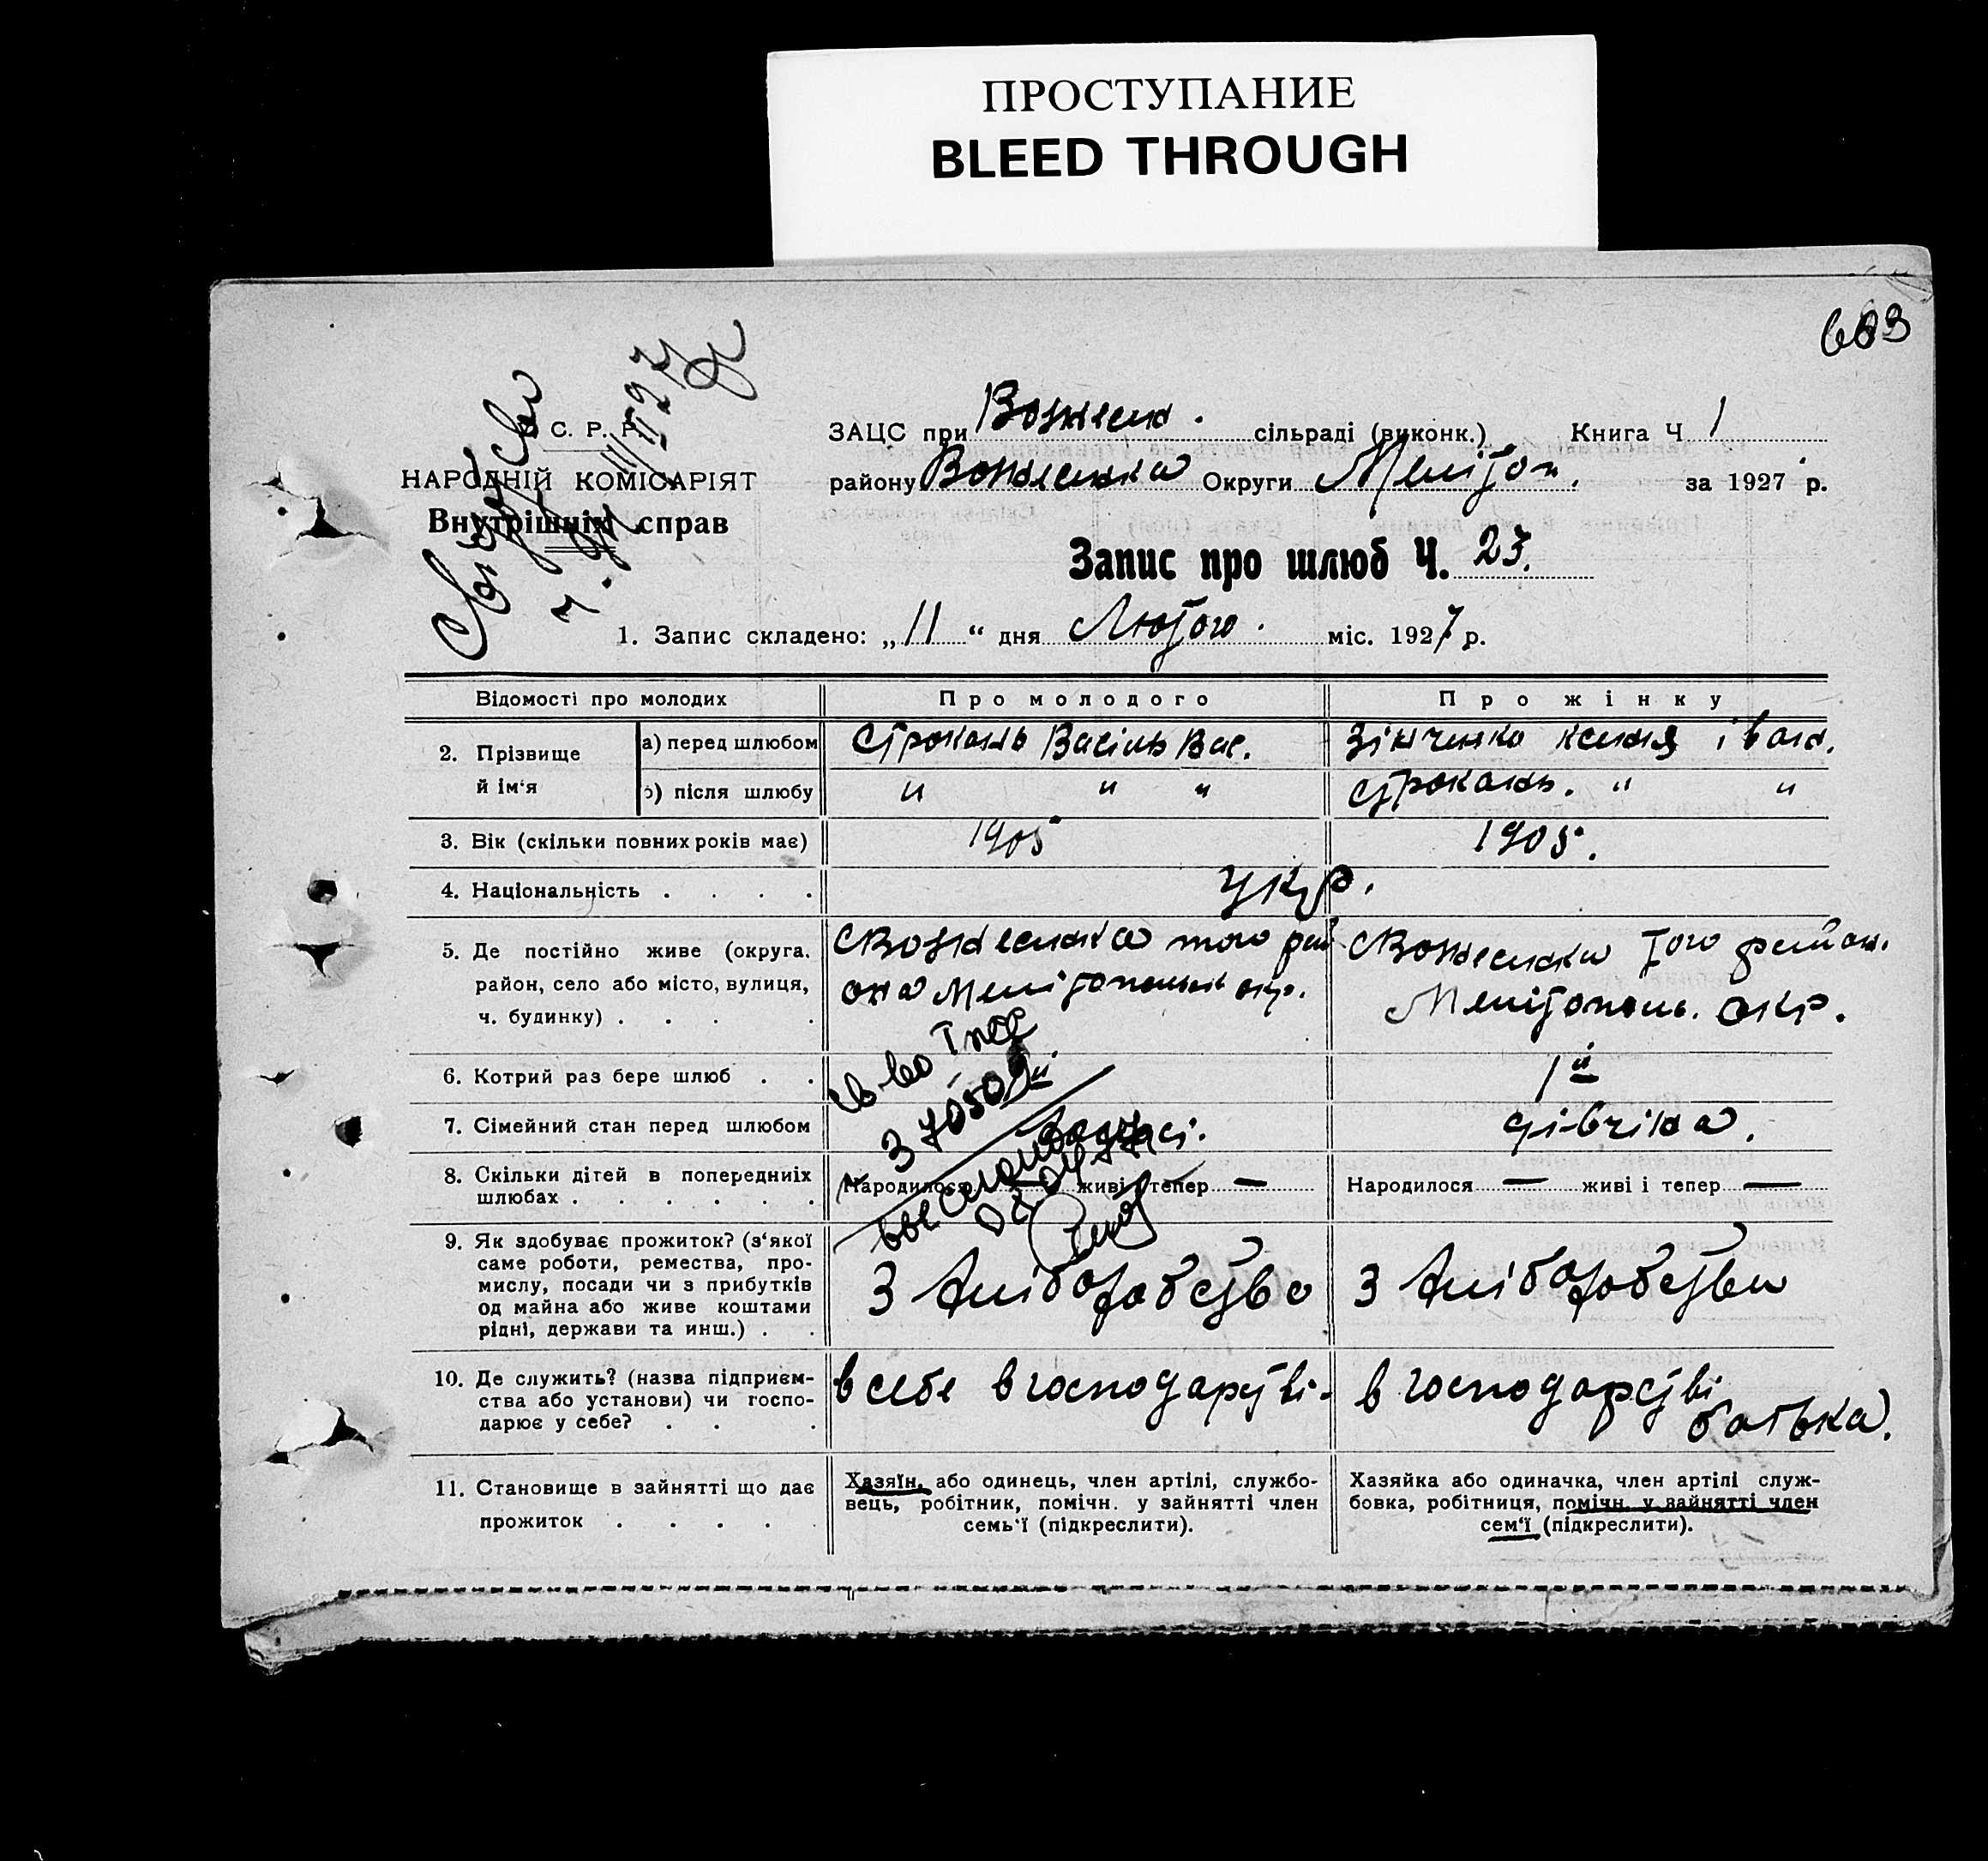 ПРОСТУПАНИЕ
BLEED THROUGH
603
С. Р. Р.
НАРОДНІЙ КОМІСАРІЯТ
Внутрішніх справ
ЗАЦС при Вознесен. сільраді (виконк.) Книга Ч 1
району Вознесенка Округи Мелітоп. за 1927 р.
Запис про шлюб Ч. 27.
1. Запис складено: „11“ дня Лютого. міс. 1927 р.
Відомості про молодих Про молодого Про жінку
2. Прізвище й ім‘я
а) перед шлюбом Строкань Василь Вас. Зінченко Ксенія Іван.
б) після шлюбу " " " Строкань. " "
3. Вік (скільки повних років має) 1905 1905.
4. Національність . . . . укр.
5. Де постійно живе (округа. район, село або місто, вулиця, ч. будинку) . . . .
С Вознесенка того рай
она Мелітопольськ окр.
С Вознесенка того район.
Мелітополь. окр.
6. Котрий раз бере шлюб . . 1й
7. Сімейний стан перед шлюбом дівчина.
8. Скільки дітей в попередніх
шлюбах . . . . . .
Народилося живі і тепер —
Народилося — живі і тепер —
9. Як здобуває прожиток? (з‘якої
саме роботи, ремества, про-
мислу, посади чи з прибутків
од майна або живе коштами
рідні, держави та инш.) . .
З хліборобства
З хліборобства
10. Де служить? (назва підприєм-
ства або установи) чи госпо-
дарює у себе? . . .
в себе в господарстві.
в господарстві
батька.
11. Становище в зайнятті що дає
прожиток . . . . .
Хазяїн, або одинець, член артілі, службо-
вець, робітник, помічн. у зайнятті член
семь‘ї (підкреслити).
Хазяйка або одиначка, член артілі служ-
бовка, робітниця, помічн. у зайнятті член
сем‘ї (підкреслити).